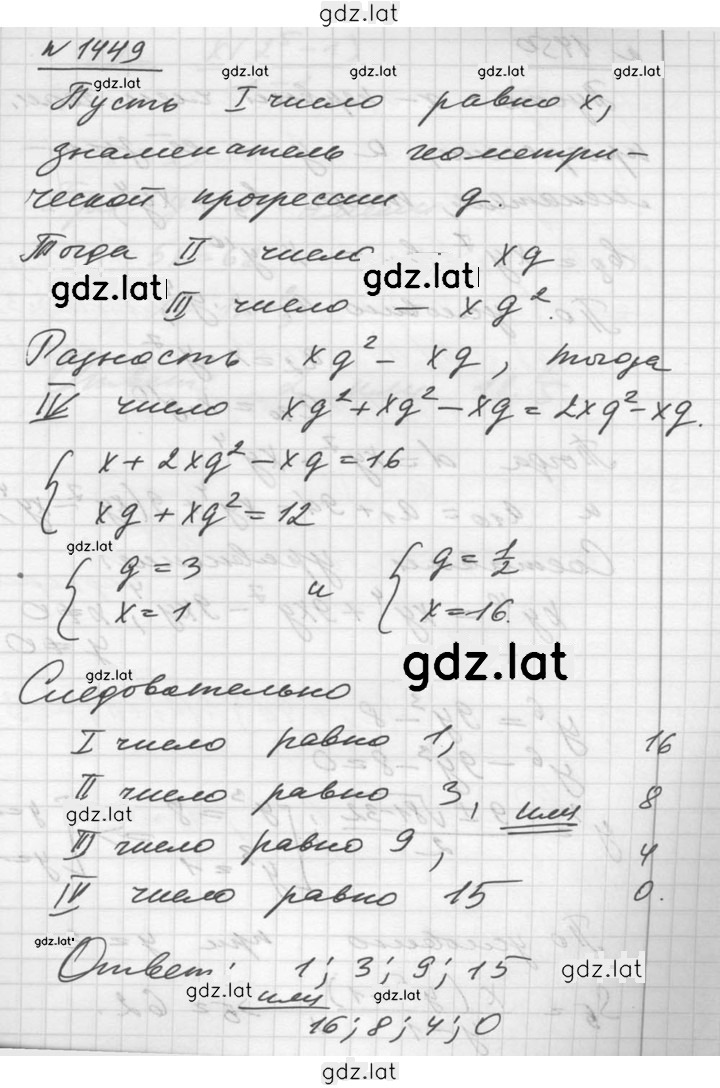 gdz.lat
№ 1449
gdz.lat gdz.lat gdz.lat gdz.lat
Пусть I число равно x,
знаменатель геометри-
ческой прогрессии g.
Тогда II число - xg
gdz.lat gdz.lat
III число - xg².
Разность xg² - xg, тогда
IV число xg² + xg² - xg = 2xg² - xg.
{ x + 2xg² - xg = 16
xg + xg² = 12
gdz.lat
{ g = 3 и { g = 1/2
x = 1 x = 16.
gdz.lat
gdz.lat
Следовательно
I число равно 1, 16
II число равно 3, или 8
gdz.lat
III число равно 9, 4
IV число равно 15 0.
gdz.lat
Ответ: 1; 3; 9; 15 gdz.lat
gdz.lat или gdz.lat
16; 8; 4; 0
gdz.lat